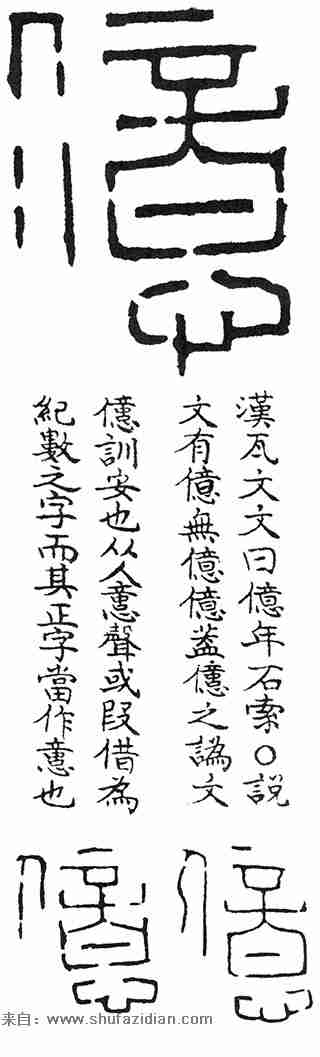 億
漢瓦文文曰億年石索〇説
文有㒔無億億葢㒔之譌文
㒔訓安也从人𢡃聲或叚借為
紀數之字而其正字當作𢡃也
億
億
来自：www.shufazidian.com